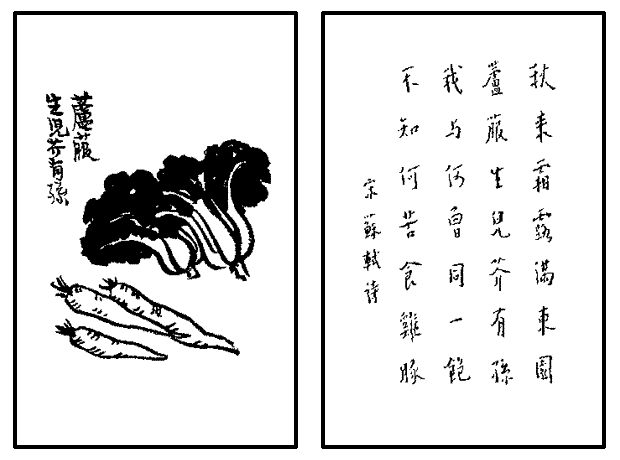 蘆菔
生兒芥有孫
秋來霜露滿東園
蘆菔生兒芥有孫
我与何曾同一飽
不知何苦食雞豚
宋蘇軾詩